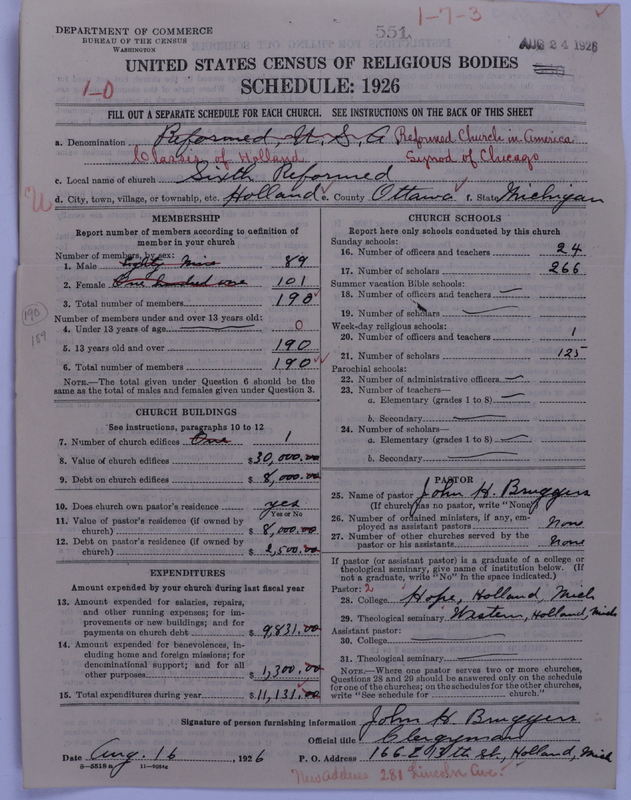 1-7-3
551.
DEPARTMENT OF COMMERCE
BUREAU OF THE CENSUS
WASHINGTON
AUG 24 1926
UNITED STATES CENSUS OF RELIGIOUS BODIES
SCHEDULE: 1926
1-0
FILL OUT A SEPARATE SCHEDULE FOR EACH CHURCH. SEE INSTRUCTIONS ON THE BACK OF THIS SHEET
a. Denomination Reformed, U, S, A Reformed Church in America
Classis of Holland Synod of Chicago
c. Local name of church Sixth Reformed
d. City, town, village, or township, etc. Holland e. County Ottawa f. State Michigan
MEMBERSHIP
Report number of members according to definition of member in your church
Number of members, by sex:
1. Male Eighty Nine 89
2. Female One hundred one 101
3. Total number of members 190
Number of members under and over 13 years old:
4. Under 13 years of age 0
190
189
5. 13 years old and over 190
6. Total number of members 190
NOTE.—The total given under Question 6 should be the same as the total of males and females given under Question 3.
CHURCH BUILDINGS
See instructions, paragraphs 10 to 12
7. Number of church edifices One 1
8. Value of church edifices $30,000.00
9. Debt on church edifices $8,000.00
10. Does church own pastor's residence yes
Yes or No
11. Value of pastor's residence (if owned by church) $8,000.00
12. Debt on pastor's residence (if owned by church) $2,500.00
EXPENDITURES
Amount expended by your church during last fiscal year
13. Amount expended for salaries, repairs, and other running expenses; for improvements or new buildings; and for payments on church debt $9,831.00
14. Amount expended for benevolences, including home and foreign missions; for denominational support; and for all other purposes $1,300.00
15. Total expenditures during year $11,131.00
CHURCH SCHOOLS
Report here only schools conducted by this church
Sunday schools:
16. Number of officers and teachers 24
17. Number of scholars 266
Summer vacation Bible schools:
18. Number of officers and teachers
19. Number of scholars
Week-day religious schools:
20. Number of officers and teachers 1
21. Number of scholars 125
Parochial schools:
22. Number of administrative officers
23. Number of teachers—
a. Elementary (grades 1 to 8)
b. Secondary
24. Number of scholars—
a. Elementary (grades 1 to 8)
b. Secondary
PASTOR
25. Name of pastor John H. Bruggers
(If church has no pastor, write "None")
26. Number of ordained ministers, if any, employed as assistant pastors None
27. Number of other churches served by the pastor or his assistants None
If pastor (or assistant pastor) is a graduate of a college or theological seminary, give name of institution below. (If not a graduate, write "No" in the space indicated.)
Pastor: 2
28. College Hope, Holland, Mich
29. Theological seminary Western, Holland, Mich
Assistant pastor:
30. College
31. Theological seminary
NOTE.—Where one pastor serves two or more churches, Questions 28 and 29 should be answered only on the schedule for one of the churches; on the schedules for the other churches, write "See schedule for church."
Signature of person furnishing information John H Bruggers
Official title Clergyman
Date Aug. 16, 1926 P. O. Address 166 E 13th St., Holland, Mich
8-5518a 11-9084c
New Address 281 Lincoln Ave.